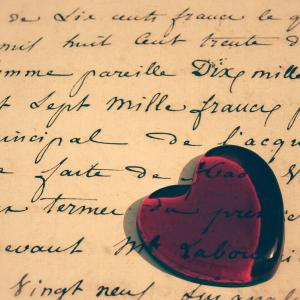 de Dix cents francs le q
mil huit Cent trente d
omme pareille Dix mille
t Sept Mille francs p
incipal de l'acqu
faite de
termes du pre
evant Me Labou
Vingt neuf